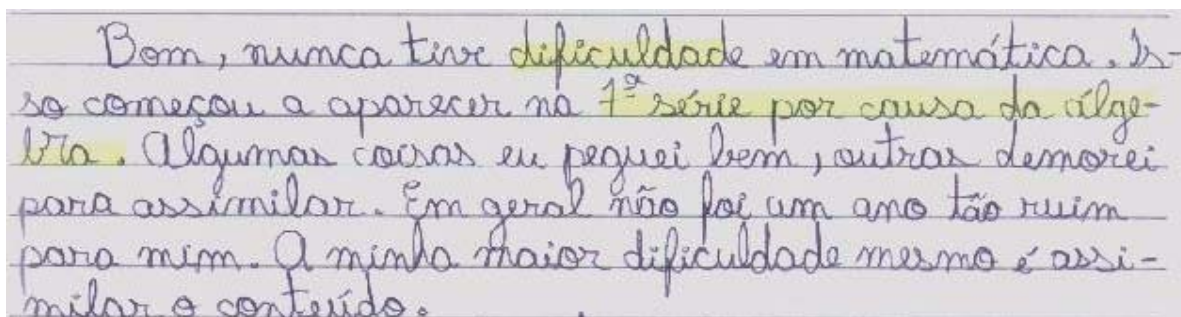 Bom, nunca tive dificuldade em matemática. Is-
so começou a aparecer na 7ª série por causa da álge-
bra. Algumas coisas eu peguei bem, outras demorei
para assimilar. Em geral não foi um ano tão ruim
para mim. A minha maior dificuldade mesmo é assi-
milar o conteúdo.